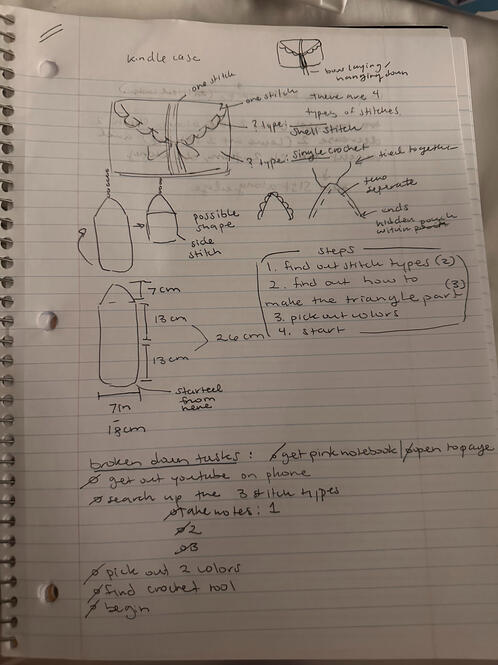 kindle case
bow laying/
hanging down
one stitch
one stitch
there are 4
types of stitches
? type: shell stitch
? type: single crochet
tied together
two
seperate
ends
hidden pouch
within pouch
possible
shape
side
stitch
steps
1. find out stitch types (2)
2. find out how to (3)
make the triangle part
3. pick out colors
4. start
7cm
13cm
26cm
13cm
started
from
here
7in
18cm
broken down tasks: get pink notebook | open to page
get out youtube on phone
search up the 3 stitch types
take notes: 1
2
3
pick out 2 colors
find crochet tool
begin